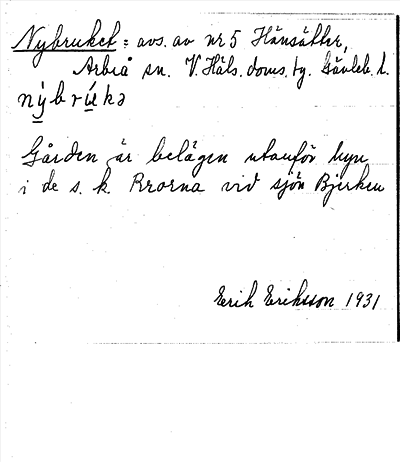 Nybruket = avs. av nr 5 Hänsätter,
Arbrå sn. V. Häls. doms. tg. Gävleb. l.
nýbrúkə
Gården är belägen utanför byn
i de s. k. Rrorna vid sjön Bjerken
Erik Eriksson 1931